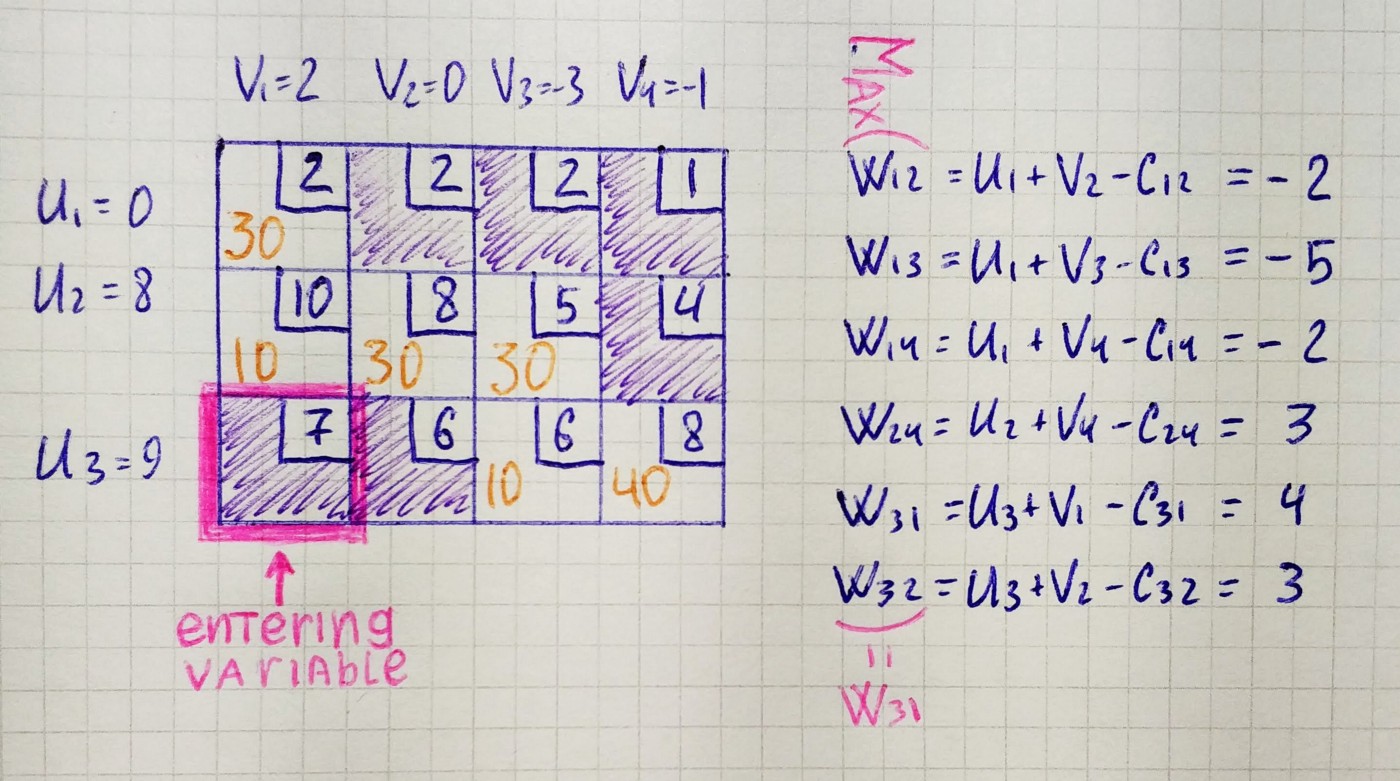 V₁=2 V₂=0 V₃=-3 V₄=-1
U₁=0 2 2 2 1
30
U₂=8 10 8 5 4
10 30 30
U₃=9 7 6 6 8
10 40
entering
variable
Max(
W₁₂ = U₁+V₂-C₁₂ = -2
W₁₃ = U₁+V₃-C₁₃ = -5
W₁₄ = U₁+V₄-C₁₄ = -2
W₂₄ = U₂+V₄-C₂₄ = 3
W₃₁ = U₃+V₁-C₃₁ = 4
W₃₂ = U₃+V₂-C₃₂ = 3
)
=
W₃₁